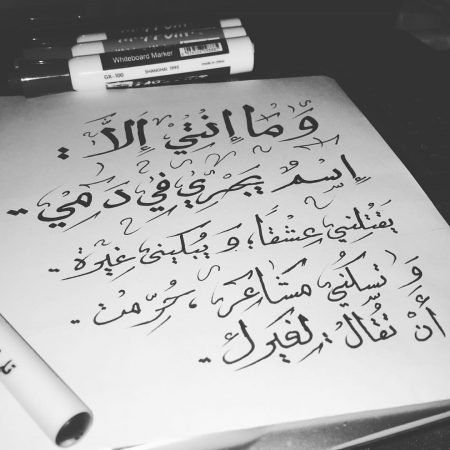 Whiteboard Marker
GX-100 SHANGHAI
وَ مَا إنْتِي إلَّا :
إسْمٌ يَجْرِي فِي دَمِيْ ..
يَقْتِلنِي عِشْقًا، وَ يُبْكِينِي غِيْرَة .
وَ تسكنُنِي مَشَاعِر ، حُرّمت .
أنْ تقُال لِغيرك .